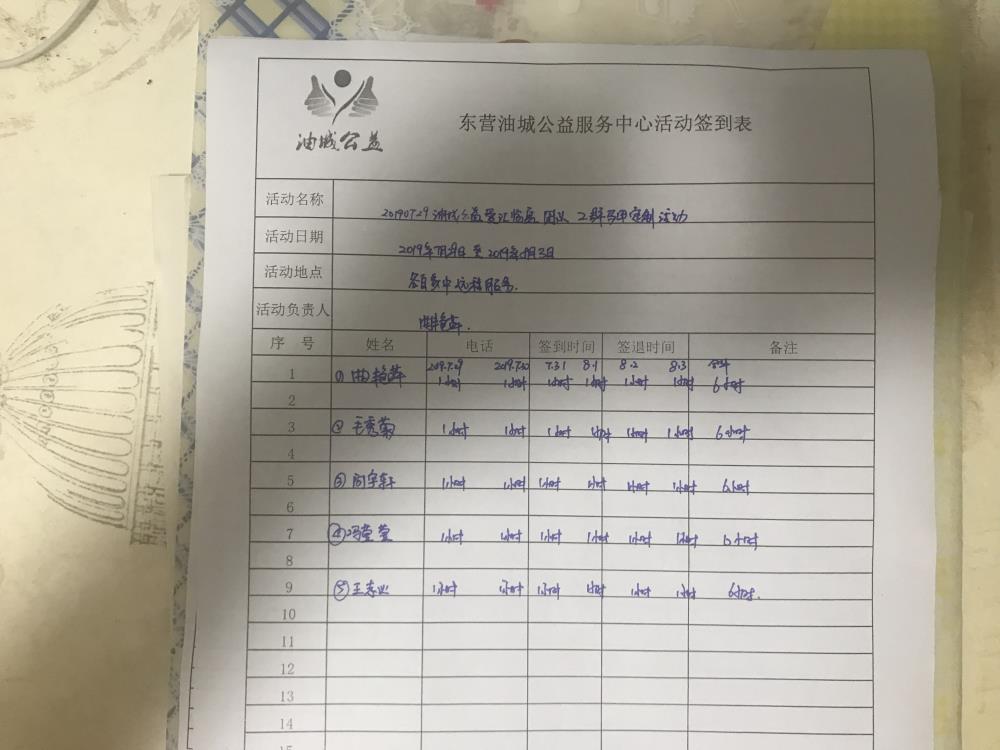 油城公益
东营油城公益服务中心活动签到表
活动名称 20190729油城公益爱心 活动
活动日期 2019年7月29日 至 2019年8月3日
活动地点 各自家中远程服务.
活动负责人 曲艳萍.
序 号 姓名 电话 签到时间 签退时间 备注
2019.7.29 2019.7.30 7.31 8.1 8.2 8.3
1 ① 曲艳萍 1小时 1小时 1小时 1小时 1小时 1小时 6小时
2
3 ② 毛秀菊 1小时 1小时 1小时 1小时 1小时 1小时 6小时
4
5 ③ 闫宇轩 1小时 1小时 1小时 1小时 1小时 1小时 6小时
6
7 ④ 冯莹莹 1小时 1小时 1小时 1小时 1小时 1小时 6小时
8
9 ⑤ 王志业 1小时 1小时 1小时 1小时 1小时 1小时 6小时.
10
11
12
13
14